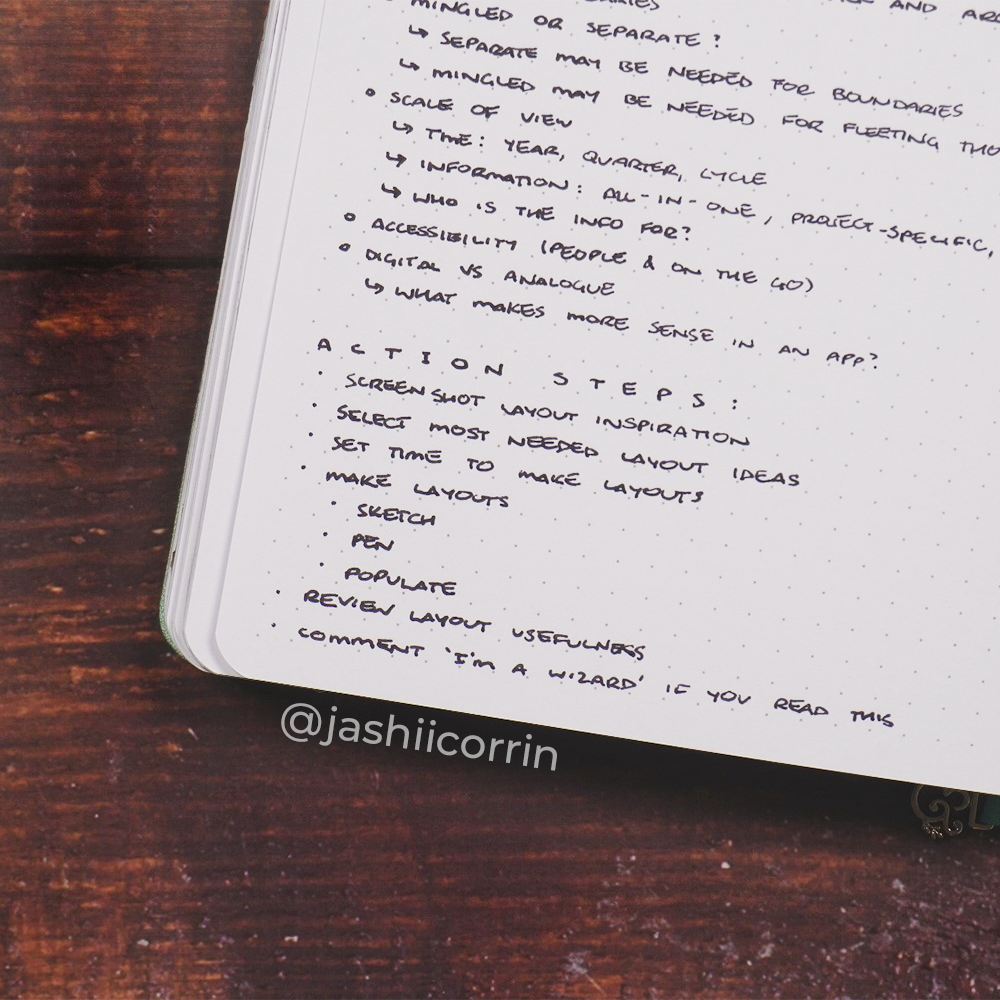 AND
MINGLED OR SEPARATE?
↳ SEPARATE MAY BE NEEDED FOR BOUNDARIES
↳ MINGLED MAY BE NEEDED FOR FLEETING
SCALE OF VIEW
↳ TIME: YEAR, QUARTER, CYCLE
↳ INFORMATION: ALL-IN-ONE, PROJECT-SPECIFIC,
↳ WHO IS THE INFO FOR?
ACCESSIBILITY (PEOPLE & ON THE GO)
DIGITAL VS ANALOGUE
↳ WHAT MAKES MORE SENSE IN AN APP?
ACTION STEPS:
· SCREENSHOT LAYOUT INSPIRATION
· SELECT MOST NEEDED LAYOUT IDEAS
· SET TIME TO MAKE LAYOUTS
· MAKE LAYOUTS
· SKETCH
· PEN
· POPULATE
· REVIEW LAYOUT USEFULNESS
· COMMENT 'I'M A WIZARD' IF YOU READ THIS
@jashiicorrin